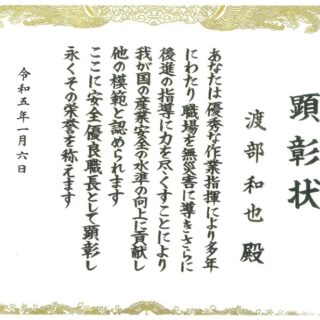 顕彰状
渡部和也 殿
あなたは優秀な作業指揮により多年
にわたり職場を無災害に導きさらに
後進の指導に力を尽くすことにより
我が国の産業安全の水準の向上に貢献し
他の模範と認められます
ここに安全優良職長として顕彰し
永くその栄誉を称えます
令和五年一月六日